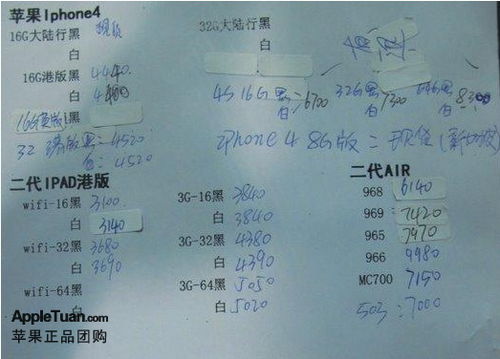 苹果Iphone4
16G大陆行黑 现货
白
32G大陆行黑
白
16G港版黑 4440.
白
黑
4S 16G 黑 白 = 6700 32G 黑 白 7300 64G 黑 白 8300
32 港版黑 = 4520
白 = 4520
iPhone 4 8G版 = 现货
二代IPAD港版
wifi-16黑 3100
白 3140
wifi-32黑 3680
白 3690
wifi-64黑
白
3G-16黑 3840
白 3840
3G-32黑 4380
白 4390
3G-64黑 5050
白 5020
二代AIR
968 6140
969 7420
965 7970
966 9980
MC700 7150
503 : 7000
AppleTuan.com
苹果正品团购